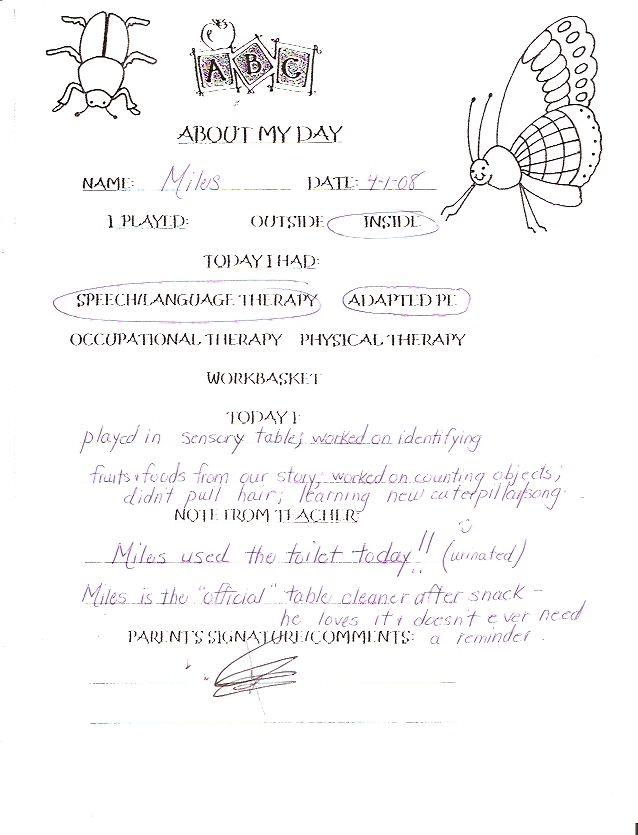 A B C
ABOUT MY DAY
NAME: Miles DATE: 4-1-08
I PLAYED: OUTSIDE INSIDE
TODAY I HAD:
SPEECH/LANGUAGE THERAPY ADAPTED PE
OCCUPATIONAL THERAPY PHYSICAL THERAPY
WORKBASKET
TODAY I:
played in sensory table; worked on identifying
fruits + foods from our story; worked on counting objects;
didn't pull hair; learning new caterpillar song.
NOTE FROM TEACHER:
Miles used the toilet today!! (urinated)
Miles is the "official" table cleaner after snack -
he loves it + doesn't ever need
PARENT'S SIGNATURE/COMMENTS: a reminder.